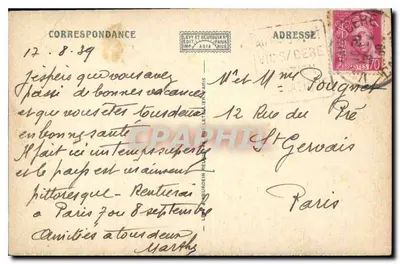 CORRESPONDANCE
ADRESSE
LEVY ET NEURDEIN REUNIS
17-8-39
J'espère que vous avez
passé de bonnes vacances
et que vous êtes tous deux
en bonne santé
Il fait ici un temps superbe
et le pays est vraiment
pittoresque - Rentrerai
a Paris 7 ou 8 septembre
Amitiés a tous deux
Marthe
Mr et Mme Pougnet
12 Rue du Pré
St Gervais
Paris
CPARAMA